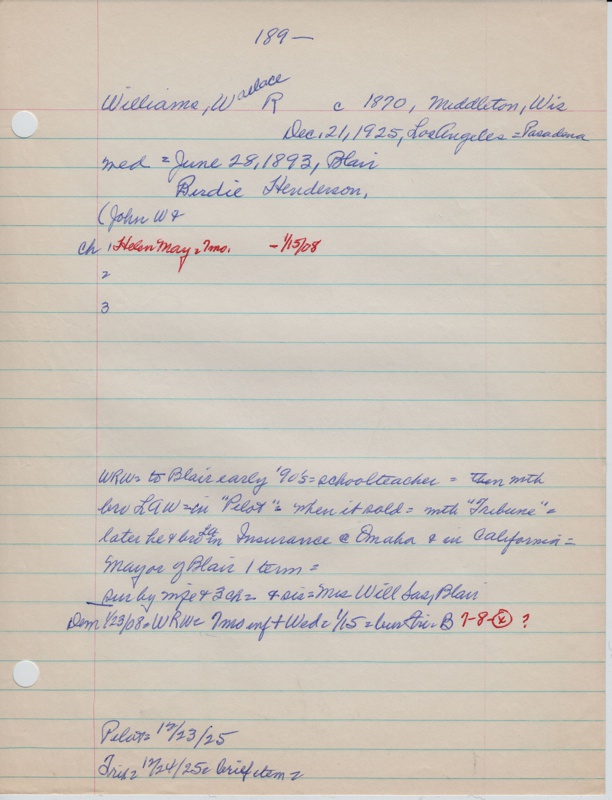 189—
Williams, Wallace R c 1870, Middleton, Wis
Dec. 21, 1925, Los Angeles = Pasadena
med = June 28, 1893, Blair
Birdie Henderson,
(John W &
ch 1 Helen May = 7mo. - 1/15/08
2
3
WRW = to Blair early '90's = schoolteacher = then mth
bro LAW = in "Pilot" = when it sold = mth "Tribune" =
later he & bro LA in Insurance @ Omaha & in California =
Mayor of Blair 1 term =
sur by wife & 3 ch = & sis = Mrs Will Sas, Blair
Dem 1/23/08 = WRW = 7mo inf + Wed = 1/15 = bur Fri = B 7-8-x ?
Pilot = 12/23/25
Trib = 12/24/25 = brief item =